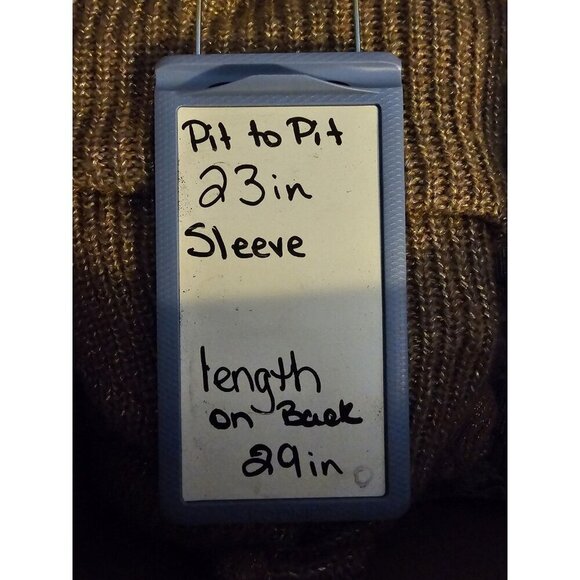 Pit to Pit
23in
Sleeve
length
on Back
29in